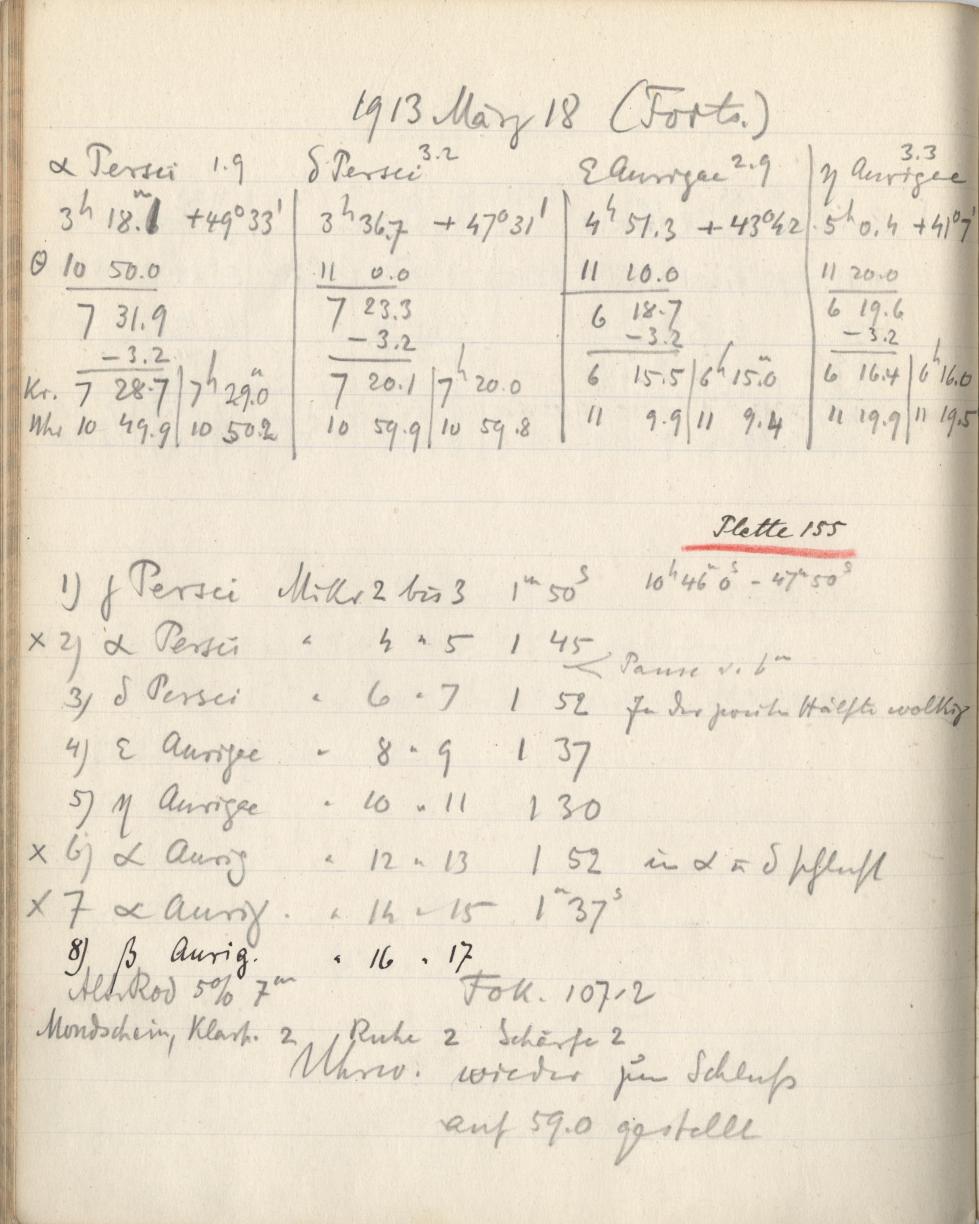 1913 März 18 (Forts.)
α Persei 1.9 | δ Persei 3.2 | ε Aurigae 2.9 | η Aurigae 3.3
3ʰ 18.1ᵐ +49°33' | 3ʰ 36.7 +47°31' | 4ʰ 51.3 +43°42 | 5ʰ 0.4 +41°7'
Θ 10 50.0 | 11 0.0 | 11 10.0 | 11 20.0
7 31.9 | 7 23.3 | 6 18.7 | 6 19.6
−3.2 | −3.2 | −3.2 | −3.2
Kr. 7 28.7 | 7ʰ 29.0ᵐ | 7 20.1 | 7ʰ 20.0 | 6 15.5 | 6ʰ 15.0ᵐ | 6 16.4 | 6ʰ 16.0
Uhr 10 49.9 | 10 50.2 | 10 59.9 | 10 59.8 | 11 9.9 | 11 9.4 | 11 19.9 | 11 19.5
Platte 155
1) γ Persei Mikr. 2 bis 3 1ᵐ 50ˢ 10ʰ 46ᵐ 0ˢ - 47ᵐ 50ˢ
× 2) α Persei " 4 " 5 1 45
Pause v. 6ᵐ
3) δ Persei " 6 " 7 1 52 In der zweiten Hälfte wolkig
4) ε Aurigae " 8 " 9 1 37
5) η Aurigae " 10 " 11 1 30
× 6) α Aurig " 12 " 13 1 52 in α u δ schlecht
× 7 α Aurig. " 14 " 15 1ᵐ 37ˢ
8) β Aurig. " 16 " 17
Rod 5% 7ᵐ Fok. 107.2
Mondschein, Klarh. 2, Ruhe 2 Schärfe 2
Uhrw. wieder zum Schluß
auf 59.0 gestellt